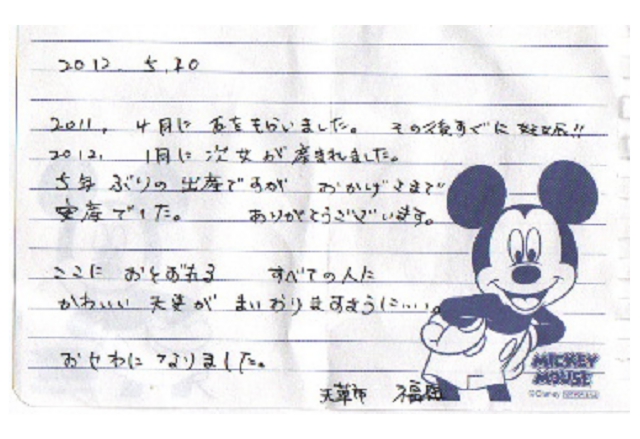 2012. 5.20
2011. 4月に 石をもらいました。 その後すぐに 妊娠!!
2012. 1月に 次女が産まれました。
5年ぶりの出産ですが おかげさまで
安産でした。 ありがとうございます。
ここに おとずれる すべての人に
かわいい 天使が まいおりますように…。
おせわに なりました。
天草市
MICKEY
MOUSE
©Disney